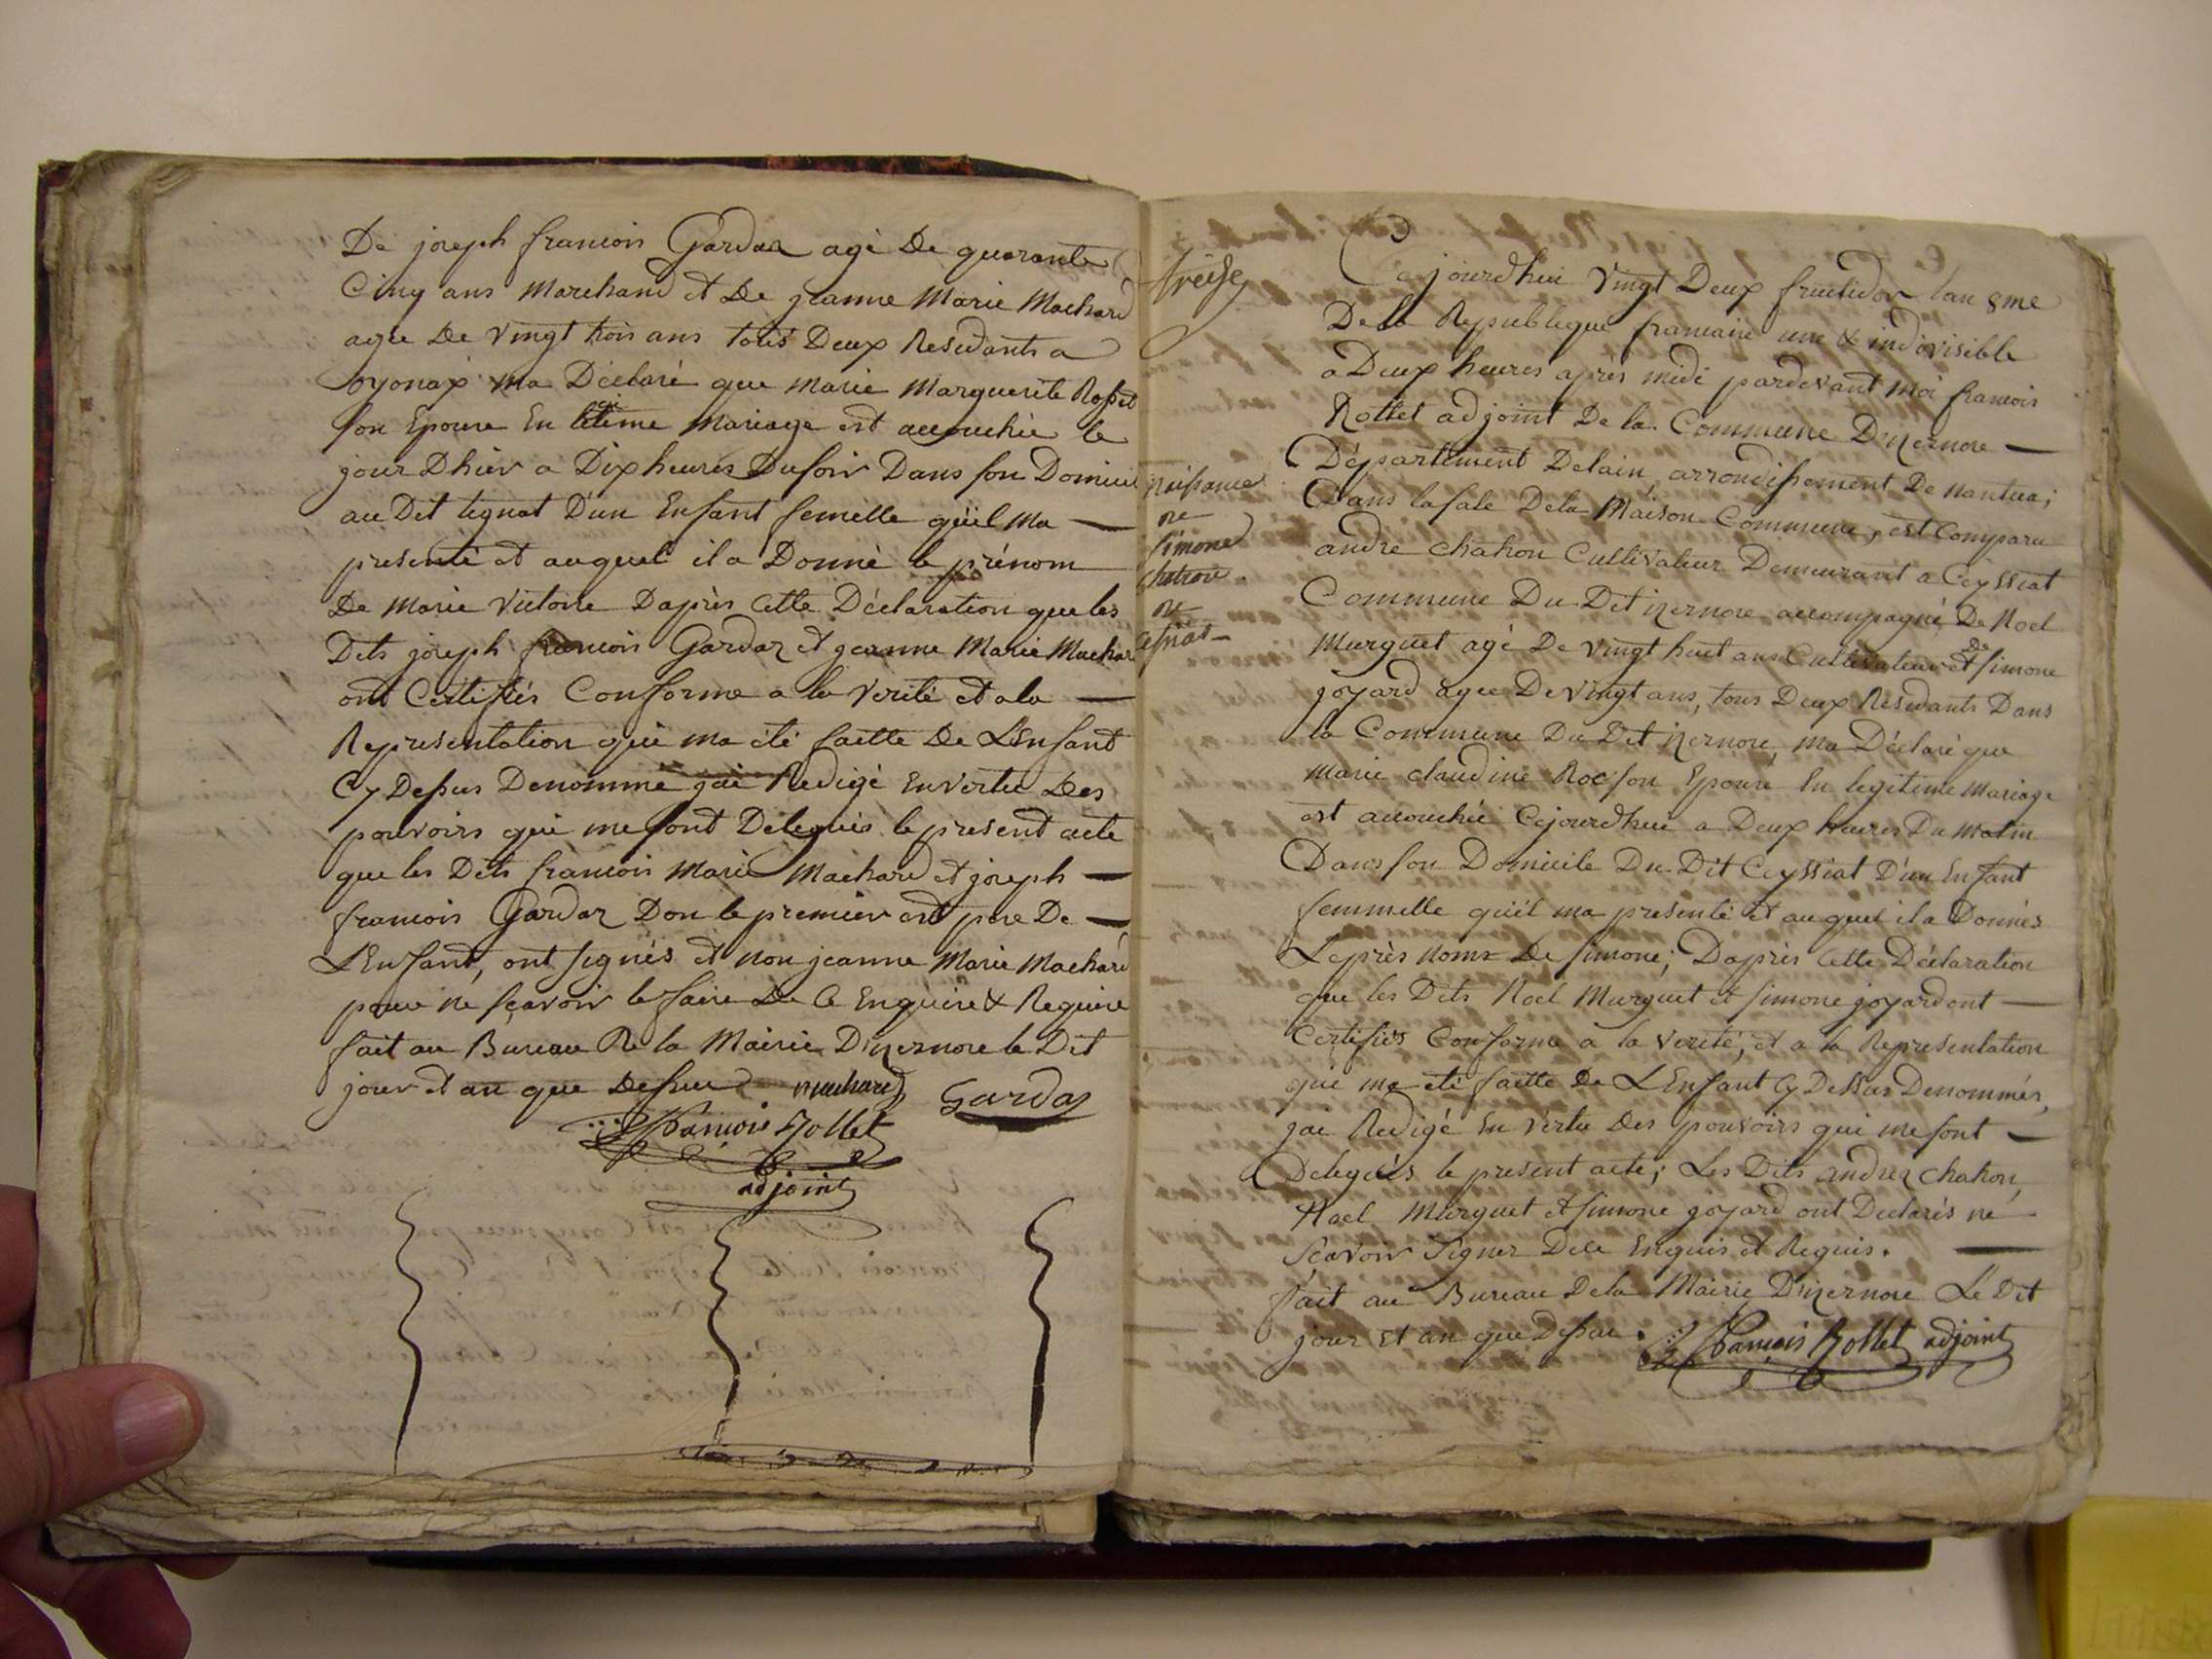 De joseph francois Gardaz agé De quarante
Cinq ans Marchand et De jeanne Marie Machard
agée De vingt trois ans tous Deux Residants a
oyonax ma Déclaré que Marie Marguerite Rosset
son Epouse En letime Mariage est accouchée le
gi
jour Dhier a Dix heures Du soir Dans son Domicil
au Dit tignat D'un Enfant femelle qu'il Ma
presenté et auquel il a Donné le prénom
De Marie Victoire Daprès Cette Déclaration que les
Dits joseph francois Gardaz et jeanne Marie Machar
ont Certifiés Conforme a la Verité et a la
Representation qui ma été faitte De L'Enfant
Cy Dessus Denommé jai Redigé En vertu Des
pouvoirs qui me sont Delegués le present acte
que les Dits francois Marie Machard et joseph
francois Gardaz Don le premier est pere De
L'Enfant, ont signés et non jeanne Marie Machard
pour ne sçavoir le faire De Ce Enquire & Require
fait au Bureau De la Mairie D'izernore le Dit
jour et an que Dessus machard Gardaz
francois Rollet
adjoint
treise
Naissance
de
simone
chatron
de
cesiat
Ce jourdhui Vingt Deux fructidor lan 8me
De la Republique francaise une & indivisible
a Deux heures après midi pardevant moi francois
Rollet adjoint De la Commune D'izernore
Département Delain, arrondissement De Nantua;
Dans la sale De la Maison Commune, est Comparu
andré chatron Cultivateur Demeurant a Ceyssiat
Commune Du Dit izernore accompagné De Noel
Murguet agé De vingt huit ans Cultivateur et simone
de
joyard agée De vingt ans, tous Deux Residants Dans
la Commune Du Dit izernore, ma Déclaré que
Marie claudine Roc son Epouse En legitime Mariage
est accouchée Cejourdhui a Deux heures Du Matin
Dans son Domicile Du Dit Ceyssiat D'un Enfant
femmelle quil ma presenté et auquel il a Donnés
Le près noms De simone; Daprès Cette Déclaration
que les Dits Noel Murguet et simone joyard ont
Certifiés Conforme a la Verité, et a la Representation
qui ma été faitte De L'Enfant Cy Dessus Denommés,
jae Redigé En Vertu Des pouvoirs qui me sont
Delegués le present acte; Les Dits andrez chatron,
Noel Murguet et simone joyard ont Declarés ne
scavoir signer De Ce Enquis et Requis.
fait au Bureau De la Mairie D'izernore Le Dit
jour et an que Dessus. francois Rollet adjoint